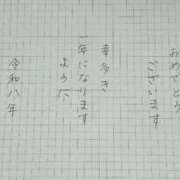 おめでとう
ございます
幸多き
一年になります
ように
令和八年